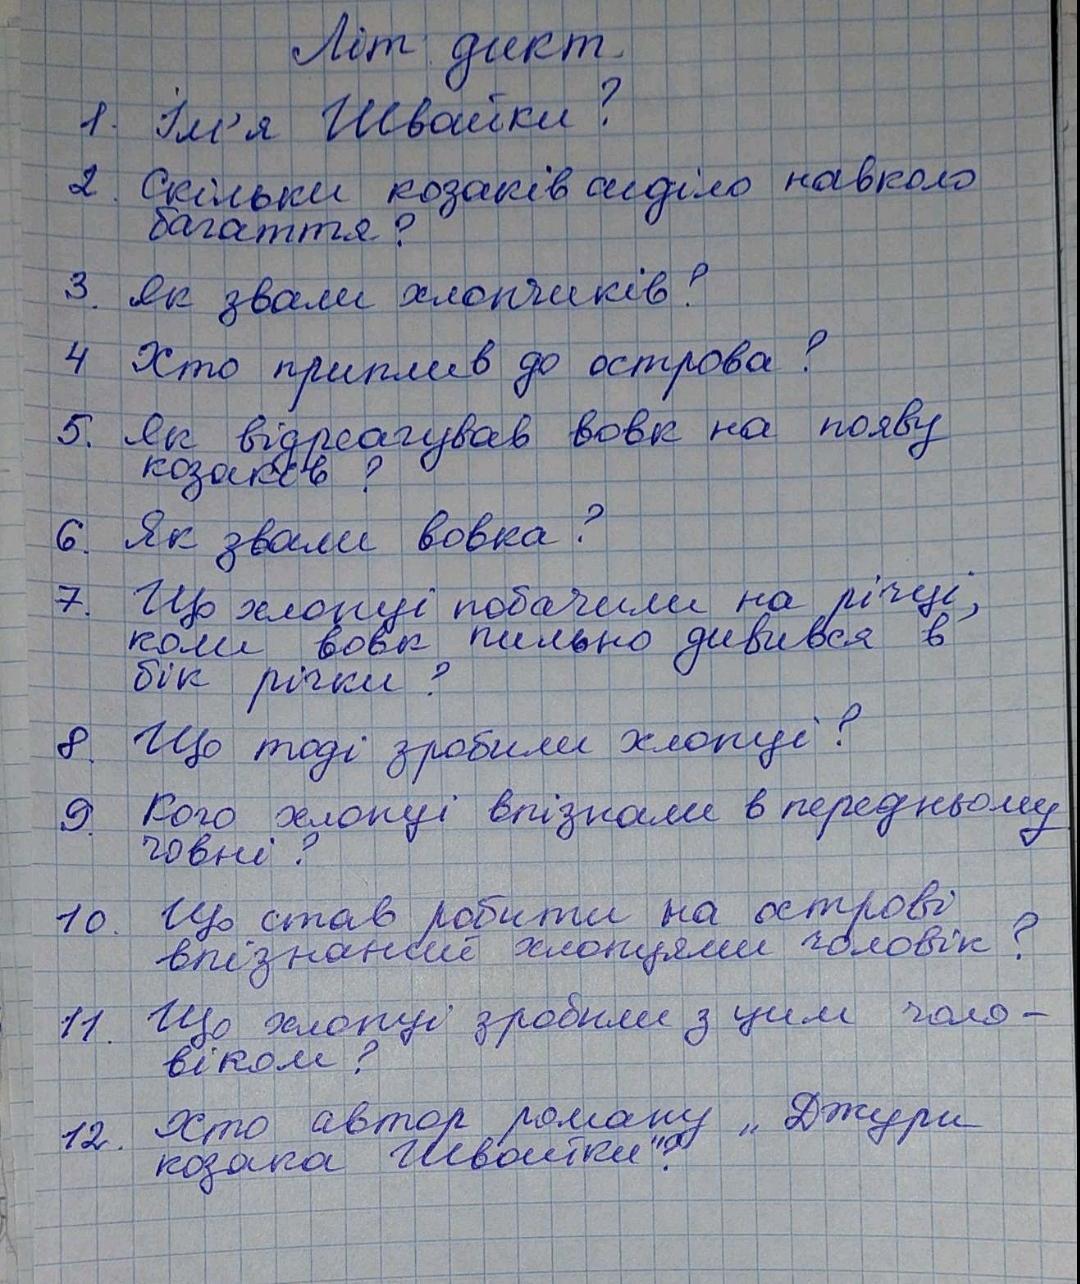 Літ дикт.
1. Ім'я Швайки?
2. Скільки козаків сиділо навколо
багаття?
3. Як звали хлопчиків?
4 Хто приплив до острова?
5. Як відреагував вовк на появу
козаків?
6. Як звали вовка?
7. Що хлопці побачили на річці,
коли вовк пильно дивився в
бік річки?
8. Що тоді зробили хлопці?
9. Кого хлопці впізнали в передньому
човні?
10. Що став робити на острові
впізнаний хлопцями чоловік?
11. Що хлопці зробили з цим чоло-
віком?
12. Хто автор роману „Джури
козака Швайки"?